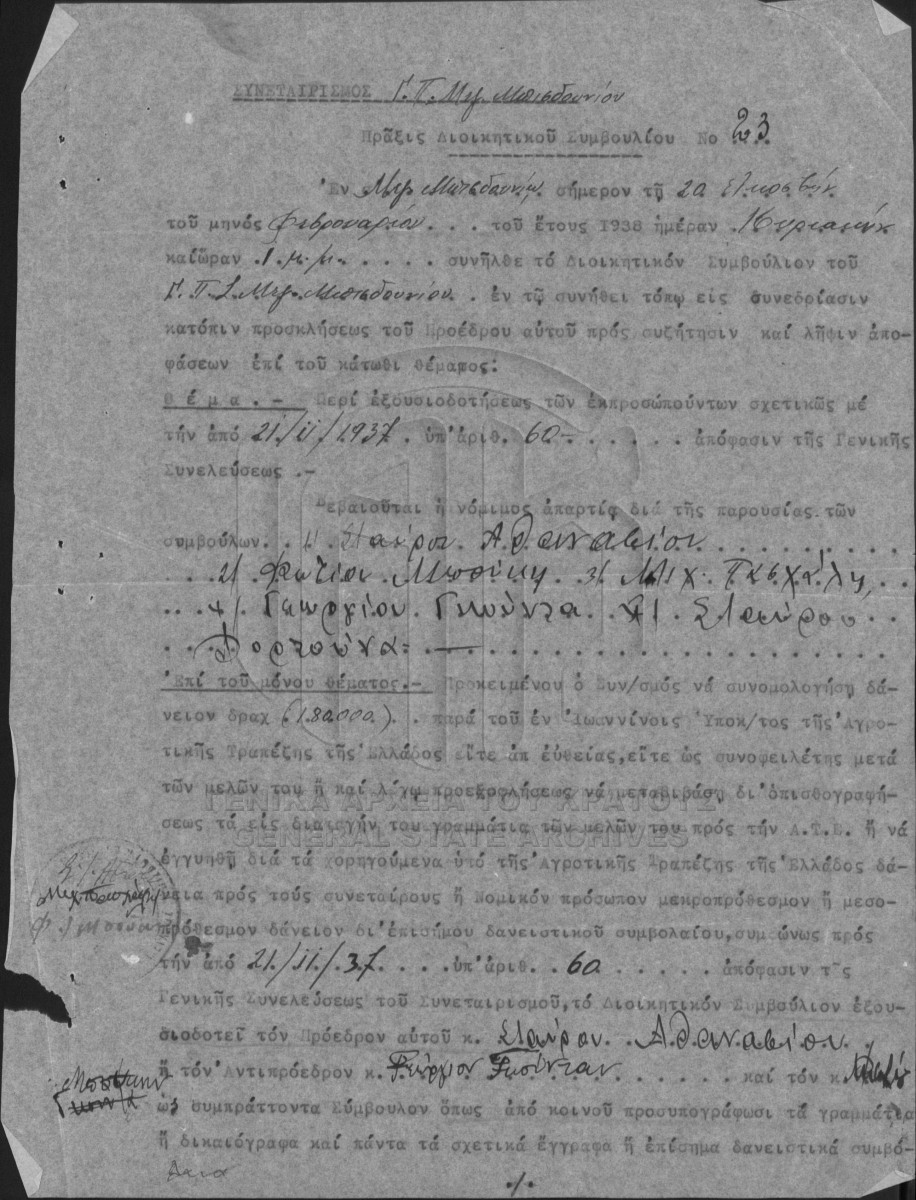 ΣΥΝΕΤΑΙΡΙΣΜΟΣ Γ.Π. Μεγ. Μπισδουνίου
Πρᾶξις Διοικητικοῦ Συμβουλίου Νο 23
Ἐν Μεγ Μπισδουνίῳ σήμερον τῇ 20 εἰκοστήν
τοῦ μηνός Φεβρουαρίου . . . τοῦ ἔτους 1938 ἡμέραν Κυριακήν
καίὥραν .1.μ.μ. . . . . συνῆλθε τό Διοικητικόν Συμβούλιον τοῦ
Γ.Π.Σ. Μεγ. Μπισδουνίου . ἐν τῷ συνήθει τόπῳ εἰς συνεδρίασιν
κατόπιν προσκλήσεως τοῦ Προέδρου αὐτοῦ πρός συζήτησιν καί λῆψιν ἀπο-
φάσεων ἐπί τοῦ κάτωθι θέματος:
Θ έ μ α . - Περί ἐξουσιοδοτήσεως τῶν ἐκπροσώπούντων σχετικῶς μέ
τήν ἀπό 21/11/1937 . ὑπ'ἀριθ. 60- . . . . . . ἀπόφασιν τῆς Γενικῆς
Συνελεύσεως .-
Βεβαιοῦται ἡ νόμιμος ἀπαρτία διά τῆς παρουσίας τῶν
συμβούλων. . 1) Σταύρου Ἀθανασίου . . . . . . . . .
. . . 2) Φωτίου Μπσίκη 3) Μιχ. Πασχάλη, . .
. . . 4) Γεωργίου Γκούντα . . 5) Σταύρου . .
. . . Φορτούνα- — . . . . . . . . . . . .
Ἐπί τοῦ μόνου θέματος.- Προκειμένου ὁ Συν/σμός νά συνομολογήσῃ δά-
νειον δραχ (180.000.) . . παρά τοῦ ἐν Ἰωαννίνοις Ὑποκ/τος τῆς Ἀγρο-
τικῆς Τραπέζης τῆς Ἑλλάδος εἴτε ἀπ εὐθείας,εἴτε ὡς συνοφειλέτης μετά
τῶν μελῶν του ἤ καί λόγῳ προεξοφλήσεως νά μεταβιβάσῃ δι'ὀπισθογραφή-
ΓΕΝΙΚΑ ΑΡΧΕΙΑ ΤΟΥ ΚΡΑΤΟΥΣ
σεως τά εἰς διαταγήν του γραμμάτια τῶν μελῶν του πρός τήν Α.Τ.Ε. ἤ νά
GENERAL STATE ARCHIVES
ἐγγυηθῇ διά τά χορηγούμενα ὑπό τῆς Ἀγροτικῆς Τραπέζης τῆς Ἑλλάδος δά-
νεια πρός τούς συνεταίρους ἤ Νομικόν πρόσωπον μακροπρόθεσμον ἤ μεσο-
πρόθεσμον δάνειον δι'ἐπισήμου δανειστικοῦ συμβολαίου,συμφώνως πρός
τήν ἀπό 21/11/37 . . . . ὑπ'ἀριθ. . 60 . . . . . ἀπόφασιν τῆς
Γενικῆς Συνελεύσεως τοῦ Συνεταιρισμοῦ,τό Διοικητικόν Συμβούλιον ἐξου-
σιοδοτεῖ τόν Πρόεδρον αὐτοῦ κ. Σταύρον Ἀθανασίου . .
ἤ τόν Ἀντιπρόεδρον κ. Γεώργιον Γκούνταν . . . . . . . καί τόν κ.
ὡς συμπράττοντα Σύμβουλον ὅπως ἀπό κοινοῦ προσυπογράφωσι τά γραμμάτια
ἤ δικαιόγραφα καί πάντα τά σχετικά ἔγγραφα ἤ ἐπίσημα δανειστικά συμβό-
./.